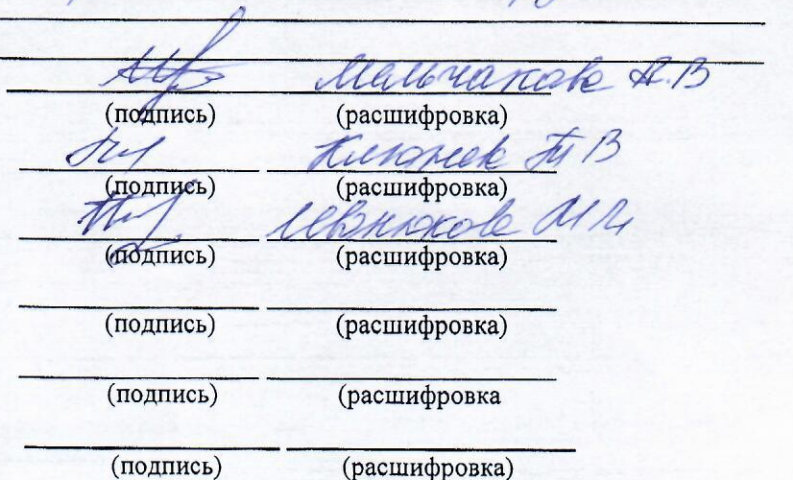 Мельчакова А.В
(подпись) (расшифровка)
Т В
(подпись) (расшифровка)
(подпись) (расшифровка)
(подпись) (расшифровка)
(подпись) (расшифровка
(подпись) (расшифровка)